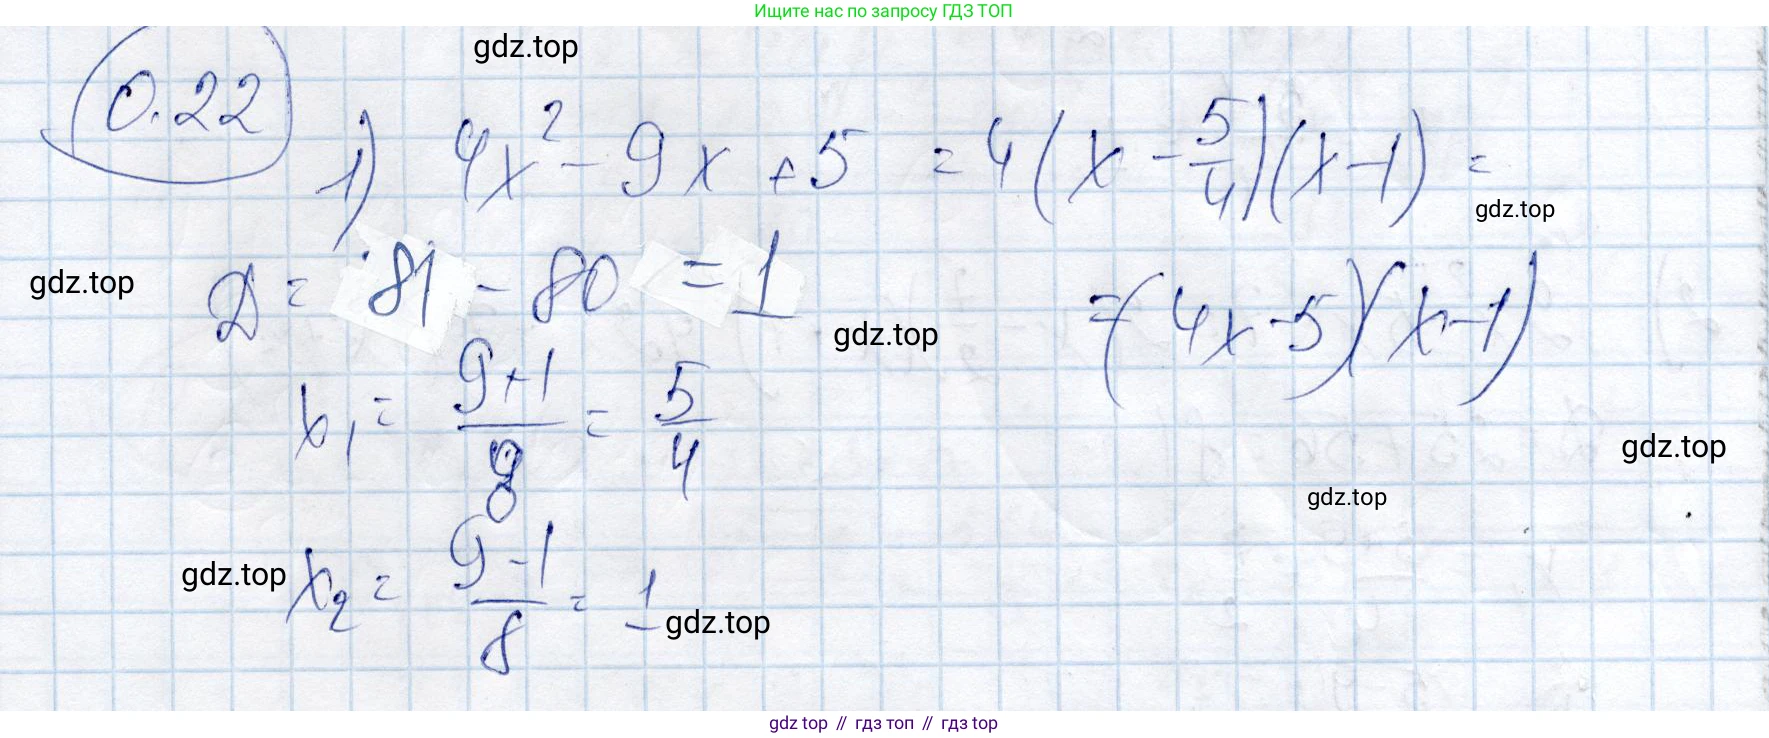 Ищите нас по запросу ГДЗ ТОП
gdz.top
0.22
1) 4x² - 9x + 5 = 4(x - 5/4)(x - 1) =
gdz.top
gdz.top
D = 81 - 80 = 1
= (4x - 5)(x - 1)
gdz.top
x₁ = (9+1)/8 = 5/4
gdz.top
gdz.top
gdz.top
x₂ = (9-1)/8 = 1
gdz.top
gdz top // гдз топ // гдз top